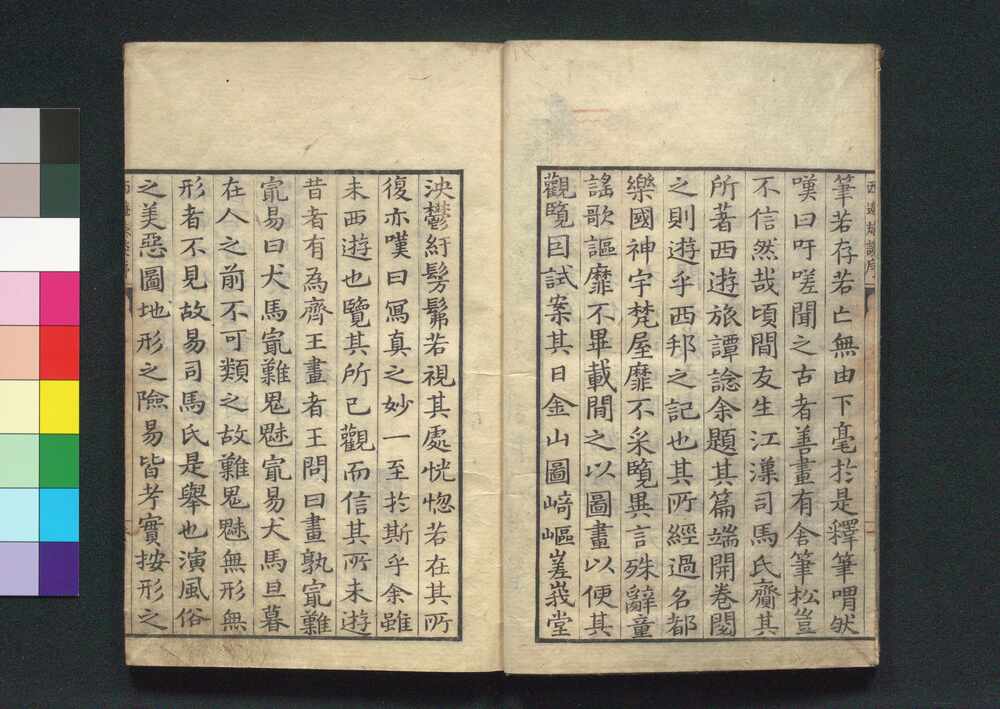 筆若存若亡無由下毫於是釋筆喟然
嘆曰吁嗟聞之古者善畫有舍筆松豈
不信然哉頃間友生江漢司馬氏齎其
所著西遊旅譚諗余題其篇端開卷閱
之則遊乎西邦之記也其所經過名都
樂國神宇梵屋靡不采覽異言殊辭童
謠歌謳靡不畢載間之以圖畫以便其
觀覽因試案其日金山圖﨑嶇嵳峩堂
泱鬱紆髣髴若視其處恍惚若在其所
復亦嘆曰冩真之妙一至於斯乎余雖
未西遊也覽其所已觀而信其所未遊
昔者有為齊王畫者王問曰畫孰㝡難
㝡易曰犬馬㝡難鬼魅㝡易犬馬旦暮
在人之前不可類之故難鬼魅無形無
形者不見故易司馬氏是舉也演風俗
之美惡圖地形之險易皆考實按形之